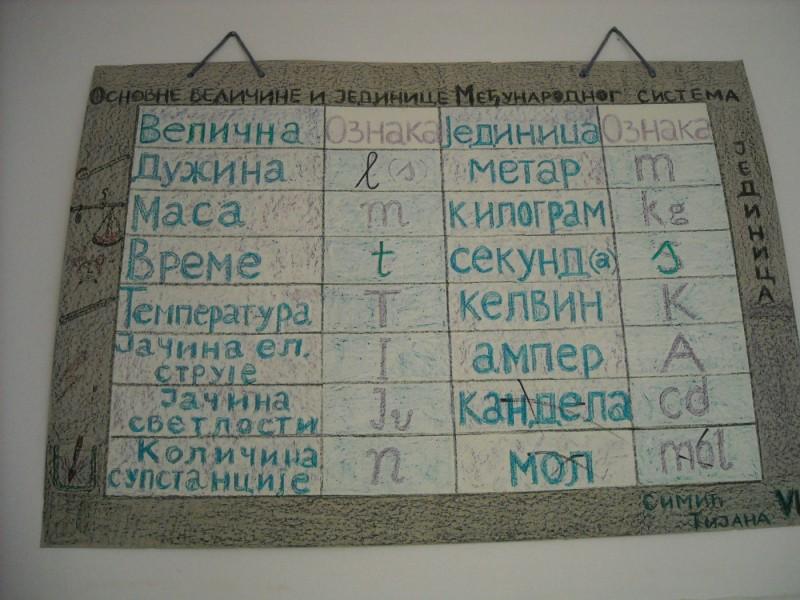 Основне величине и јединице Међународног система
јединица
Велична Ознака Јединица Ознака
Дужина l (s) метар m
Маса m килограм kg
Време t секунд(а) s
Температура T келвин K
Јачина ел. струје I ампер A
Јачина светлости Jv кандела cd
Количина супстанције n мол mol
Симић
Тијана VI